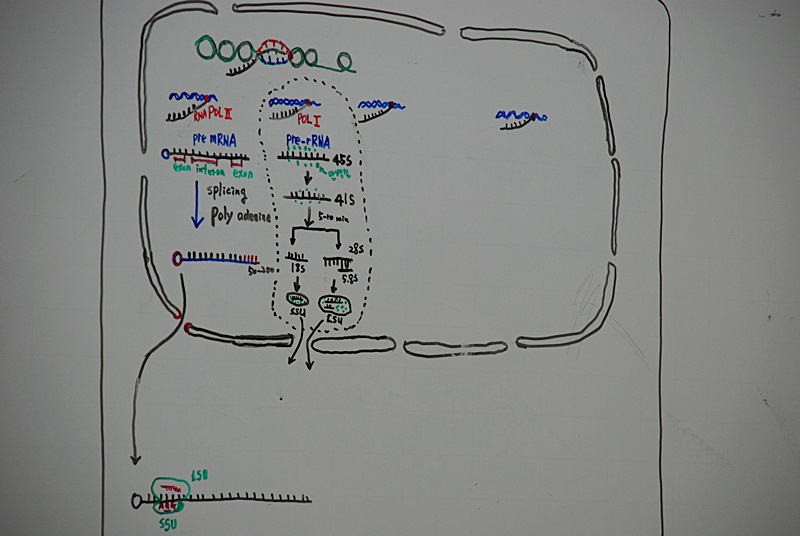 RNA POL II
POL I
pre mRNA
pre-rRNA
45S
exon interon exon
41S
splicing
Poly adenine
5-10 min
28S
50-200
18S
5.8S
SSU
LSU
LSU
SSU